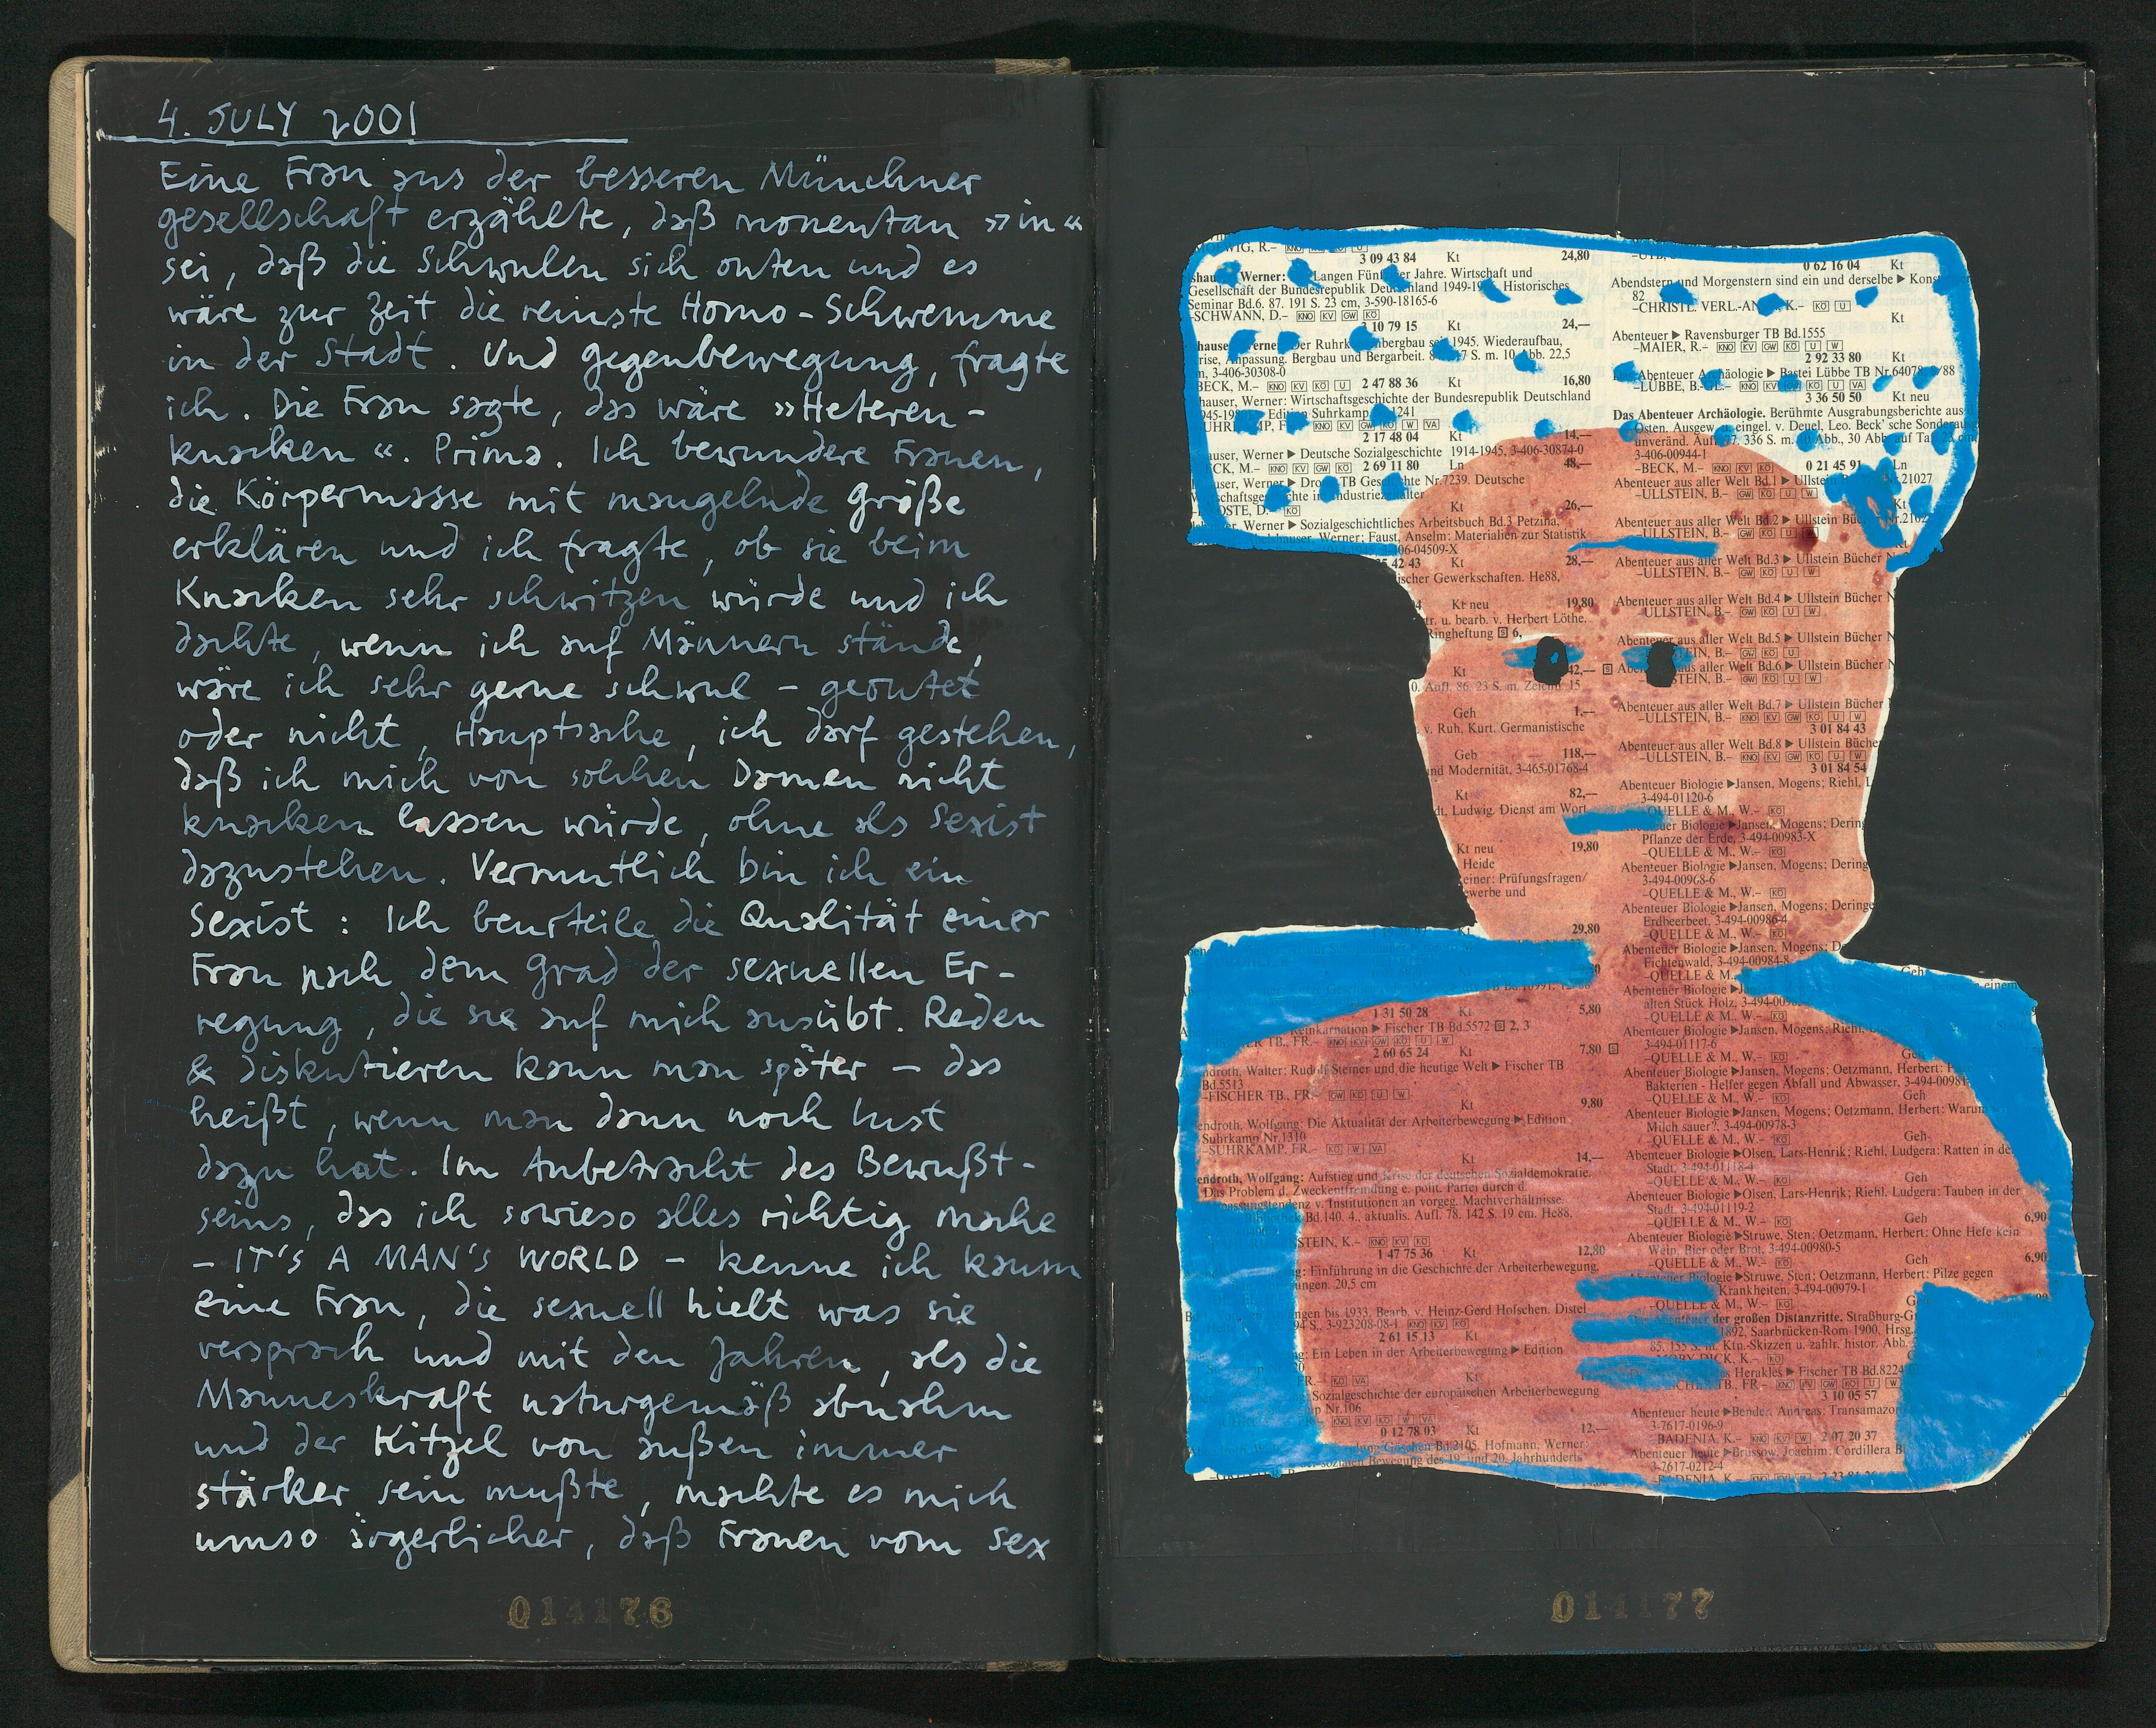 4. JULY 2001
Eine Frau aus der besseren Münchner
gesellschaft erzählte, daß momentan »in«
sei, daß die Schwulen sich outen und es
wäre zur Zeit die reinste Homo-Schwemme
in der Stadt. Und gegenbewegung, fragte
ich. Die Frau sagte, das wäre »Heteren-
knacken«. Prima. Ich bewundere Frauen,
die Körpermasse mit mangelnde größe
erklären und ich fragte, ob sie beim
Knacken sehr schwitzen würde und ich
dachte, wenn ich auf Männern stände,
wäre ich sehr gerne schwul – geoutet
oder nicht, Hauptsache, ich darf gestehen,
daß ich mich von solchen Damen nicht
knacken lassen würde, ohne als Sexist
dazustehen. Vermutlich bin ich ein
Sexist: Ich beurteile die Qualität einer
Frau nach dem grad der sexuellen Er-
regung, die sie auf mich ausübt. Reden
& diskutieren kann man später – das
heißt, wenn man dann noch lust
dazu hat. Im Anbetracht des Bewußt-
seins, das ich sowieso alles richtig mache
– IT'S A MAN'S WORLD – kenne ich kaum
eine Frau, die sexuell hielt was sie
versprach und mit den Jahren, als die
Manneskraft naturgemäß abnahm
und der Kitzel von außen immer
stärker sein mußte, machte es mich
umso ärgerlicher, daß Frauen vom Sex
014176
3 09 43 84 Kt 24,80
Werner: Langen Fünf er Jahre. Wirtschaft und
Gesellschaft der Bundesrepublik Deutschland 1949-19 Historisches
Seminar Bd.6. 87. 191 S. 23 cm, 3-590-18165-6
-SCHWANN, D.– KNO KV GW KÖ
10 79 15 Kt 24,—
Der Ruhrk bergbau seit 1945. Wiederaufbau,
Anpassung. Bergbau und Bergarbeit. S. m. 10 Abb. 22,5
3-406-30308-0
BECK, M.– KNO KV KÖ U 2 47 88 36 Kt 16,80
hauser, Werner: Wirtschaftsgeschichte der Bundesrepublik Deutschland
Edition Suhrkamp 1241
KNO KV GW KÖ W VA
2 17 48 04 Kt 14,—
auser, Werner ▶ Deutsche Sozialgeschichte 1914-1945, 3-406-30874-0
CK, M.– KNO KV GW KÖ 2 69 11 80 Ln 48,—
user, Werner ▶ TB Geschichte Nr.7239. Deutsche
Kt 26,—
Werner ▶ Sozialgeschichtliches Arbeitsbuch Bd.3 Petzina,
Werner; Faust, Anselm: Materialien zur Statistik
42 43 Kt 28,—
ischer Gewerkschaften. He88,
Kt neu 19,80
tr. u. bearb. v. Herbert Löthe.
Ringheftung S 6,
Kt 42,—
0. Aufl. 86. 23 S. m. Zeichn. 15
Geh 1,—
v. Ruh, Kurt. Germanistische
Geb 118,—
nd Modernität, 3-465-01768-4
Kt 82,—
dt, Ludwig. Dienst am Wort
Kt neu 19,80
Heide
einer: Prüfungsfragen/
ewerbe und
29,80
1 31 50 28 Kt 5,80
Reinkarnation ▶ Fischer TB Bd.5572 S 2, 3
TB., FR.– KNO KV GW KÖ U W
2 60 65 24 Kt 7,80 S
ndroth, Walter: Rudolf Steiner und die heutige Welt ▶ Fischer TB
Bd.5513
–FISCHER TB., FR.– GW KÖ U W
Kt 9,80
endroth, Wolfgang: Die Aktualität der Arbeiterbewegung ▶ Edition
Suhrkamp Nr.1310
–SUHRKAMP, FR.– KÖ W VA
Kt 14,—
endroth, Wolfgang: Aufstieg und Krise der deutschen Sozialdemokratie.
Das Problem d. Zweckentfremdung e. polit. Partei durch d.
assungstendenz v. Institutionen an vorgeg. Machtverhältnisse.
Bd.140. 4., aktualis. Aufl. 78. 142 S. 19 cm. He88,
STEIN, K.– KNO KV KÖ
1 47 75 36 Kt 12,80
g: Einführung in die Geschichte der Arbeiterbewegung.
ungen. 20,5 cm
ngen bis 1933. Bearb. v. Heinz-Gerd Hofschen. Distel
94 S., 3-923208-08-1 KNO KV KÖ
2 61 15 13 Kt
g: Ein Leben in der Arbeiterbewegung ▶ Edition
FR.– KÖ VA Kt
Sozialgeschichte der europäischen Arbeiterbewegung
p Nr.106
KNO KV KÖ W VA
0 12 78 03 Kt 12,—
Göschen Bd.2105. Hofmann, Werner:
sozialen Bewegung des 19. und 20. Jahrhunderts
0 62 16 04 Kt
Abendstern und Morgenstern sind ein und derselbe ▶ Kons
82
–CHRISTL. VERL.-AN K.– KÖ U
Kt
Abenteuer ▶ Ravensburger TB Bd.1555
–MAIER, R.– KNO KV GW KÖ U W
2 92 33 80 Kt
Abenteuer Archäologie ▶ Bastei Lübbe TB Nr.64078 /88
–LÜBBE, B. KNO KV GW KÖ U VA
3 36 50 50 Kt neu
Das Abenteuer Archäologie. Berühmte Ausgrabungsberichte aus
Osten. Ausgew. u. eingel. v. Deuel, Leo. Beck' sche Sonderaus
unveränd. Aufl. 77. 336 S. m. 10 Abb., 30 Abb. auf Taf. 23 cm
3-406-00944-1
–BECK, M.– KNO KV KÖ 0 21 45 91 Ln
Abenteuer aus aller Welt Bd.1 ▶ Ullstein Nr.21027
–ULLSTEIN, B.– GW KÖ U W Kt
Abenteuer aus aller Welt Bd.2 ▶ Ullstein Büc
–ULLSTEIN, B.– GW KÖ U W
Abenteuer aus aller Welt Bd.3 ▶ Ullstein Bücher N
–ULLSTEIN, B.– GW KÖ U W
Abenteuer aus aller Welt Bd.4 ▶ Ullstein Bücher N
–ULLSTEIN, B.– GW KÖ U W
Abenteuer aus aller Welt Bd.5 ▶ Ullstein Bücher N
EIN, B.– GW KÖ U
S Abenteuer aus aller Welt Bd.6 ▶ Ullstein Bücher N
STEIN, B.– GW KÖ U W
Abenteuer aus aller Welt Bd.7 ▶ Ullstein Bücher
–ULLSTEIN, B.– KNO KV GW KÖ U W
3 01 84 43
Abenteuer aus aller Welt Bd.8 ▶ Ullstein Büche
–ULLSTEIN, B.– KNO KV GW KÖ U W
3 01 84 54
Abenteuer Biologie ▶Jansen, Mogens; Riehl, L
3-494-01120-6
QUELLE & M., W.– KÖ
Abenteuer Biologie ▶Jansen, Mogens; Dering
Pflanze der Erde, 3-494-00983-X
–QUELLE & M., W.– KÖ
Abenteuer Biologie ▶Jansen, Mogens; Dering
3-494-00968-6
–QUELLE & M., W.– KÖ
Abenteuer Biologie ▶Jansen, Mogens; Deringe
Erdbeerbeet, 3-494-00986-4
–QUELLE & M., W.– KÖ
Abenteuer Biologie ▶Jansen, Mogens; De
Fichtenwald, 3-494-00984-8
–QUELLE & M., Geh
Abenteuer Biologie ▶Ja einem
alten Stück Holz, 3-494-009
–QUELLE & M., W.– KÖ
Abenteuer Biologie ▶Jansen, Mogens; Riehl, L
3-494-01117-6
–QUELLE & M., W.– KÖ Geh
Abenteuer Biologie ▶Jansen, Mogens; Oetzmann, Herbert:
Bakterien - Helfer gegen Abfall und Abwasser, 3-494-00981
–QUELLE & M., W.– KÖ Geh
Abenteuer Biologie ▶Jansen, Mogens; Oetzmann, Herbert: Warum
Milch sauer?, 3-494-00978-3
–QUELLE & M., W.– KÖ Geh
Abenteuer Biologie ▶Olsen, Lars-Henrik; Riehl, Ludgera: Ratten in der
Stadt, 3-494-01118-4
–QUELLE & M., W.– KÖ Geh
Abenteuer Biologie ▶Olsen, Lars-Henrik; Riehl, Ludgera: Tauben in der
Stadt, 3-494-01119-2
–QUELLE & M., W.– KÖ Geh 6,90
Abenteuer Biologie ▶Struwe, Sten; Oetzmann, Herbert: Ohne Hefe kein
Wein, Bier oder Brot, 3-494-00980-5
–QUELLE & M., W.– KÖ Geh 6,90
Abenteuer Biologie ▶Struwe, Sten; Oetzmann, Herbert: Pilze gegen
Krankheiten, 3-494-00979-1
–QUELLE & M., W.– KÖ
der großen Distanzritte. Straßburg-G
1892, Saarbrücken-Rom 1900, Hrsg.
85. 155 S. m. Ktn.-Skizzen u. zahlr. histor. Abb.
MOBY DICK, K.– KÖ
Herakles ▶ Fischer TB Bd.8224
TB., FR.– KNO KV GW KÖ U W
3 10 05 57
Abenteuer heute ▶Bender, Andreas: Transamazon
3-7617-0196-9
–BADENIA, K.– KNO KV W 2 07 20 37
Abenteuer heute ▶Brüssow, Joachim: Cordillera B
3-7617-0212-4
014177